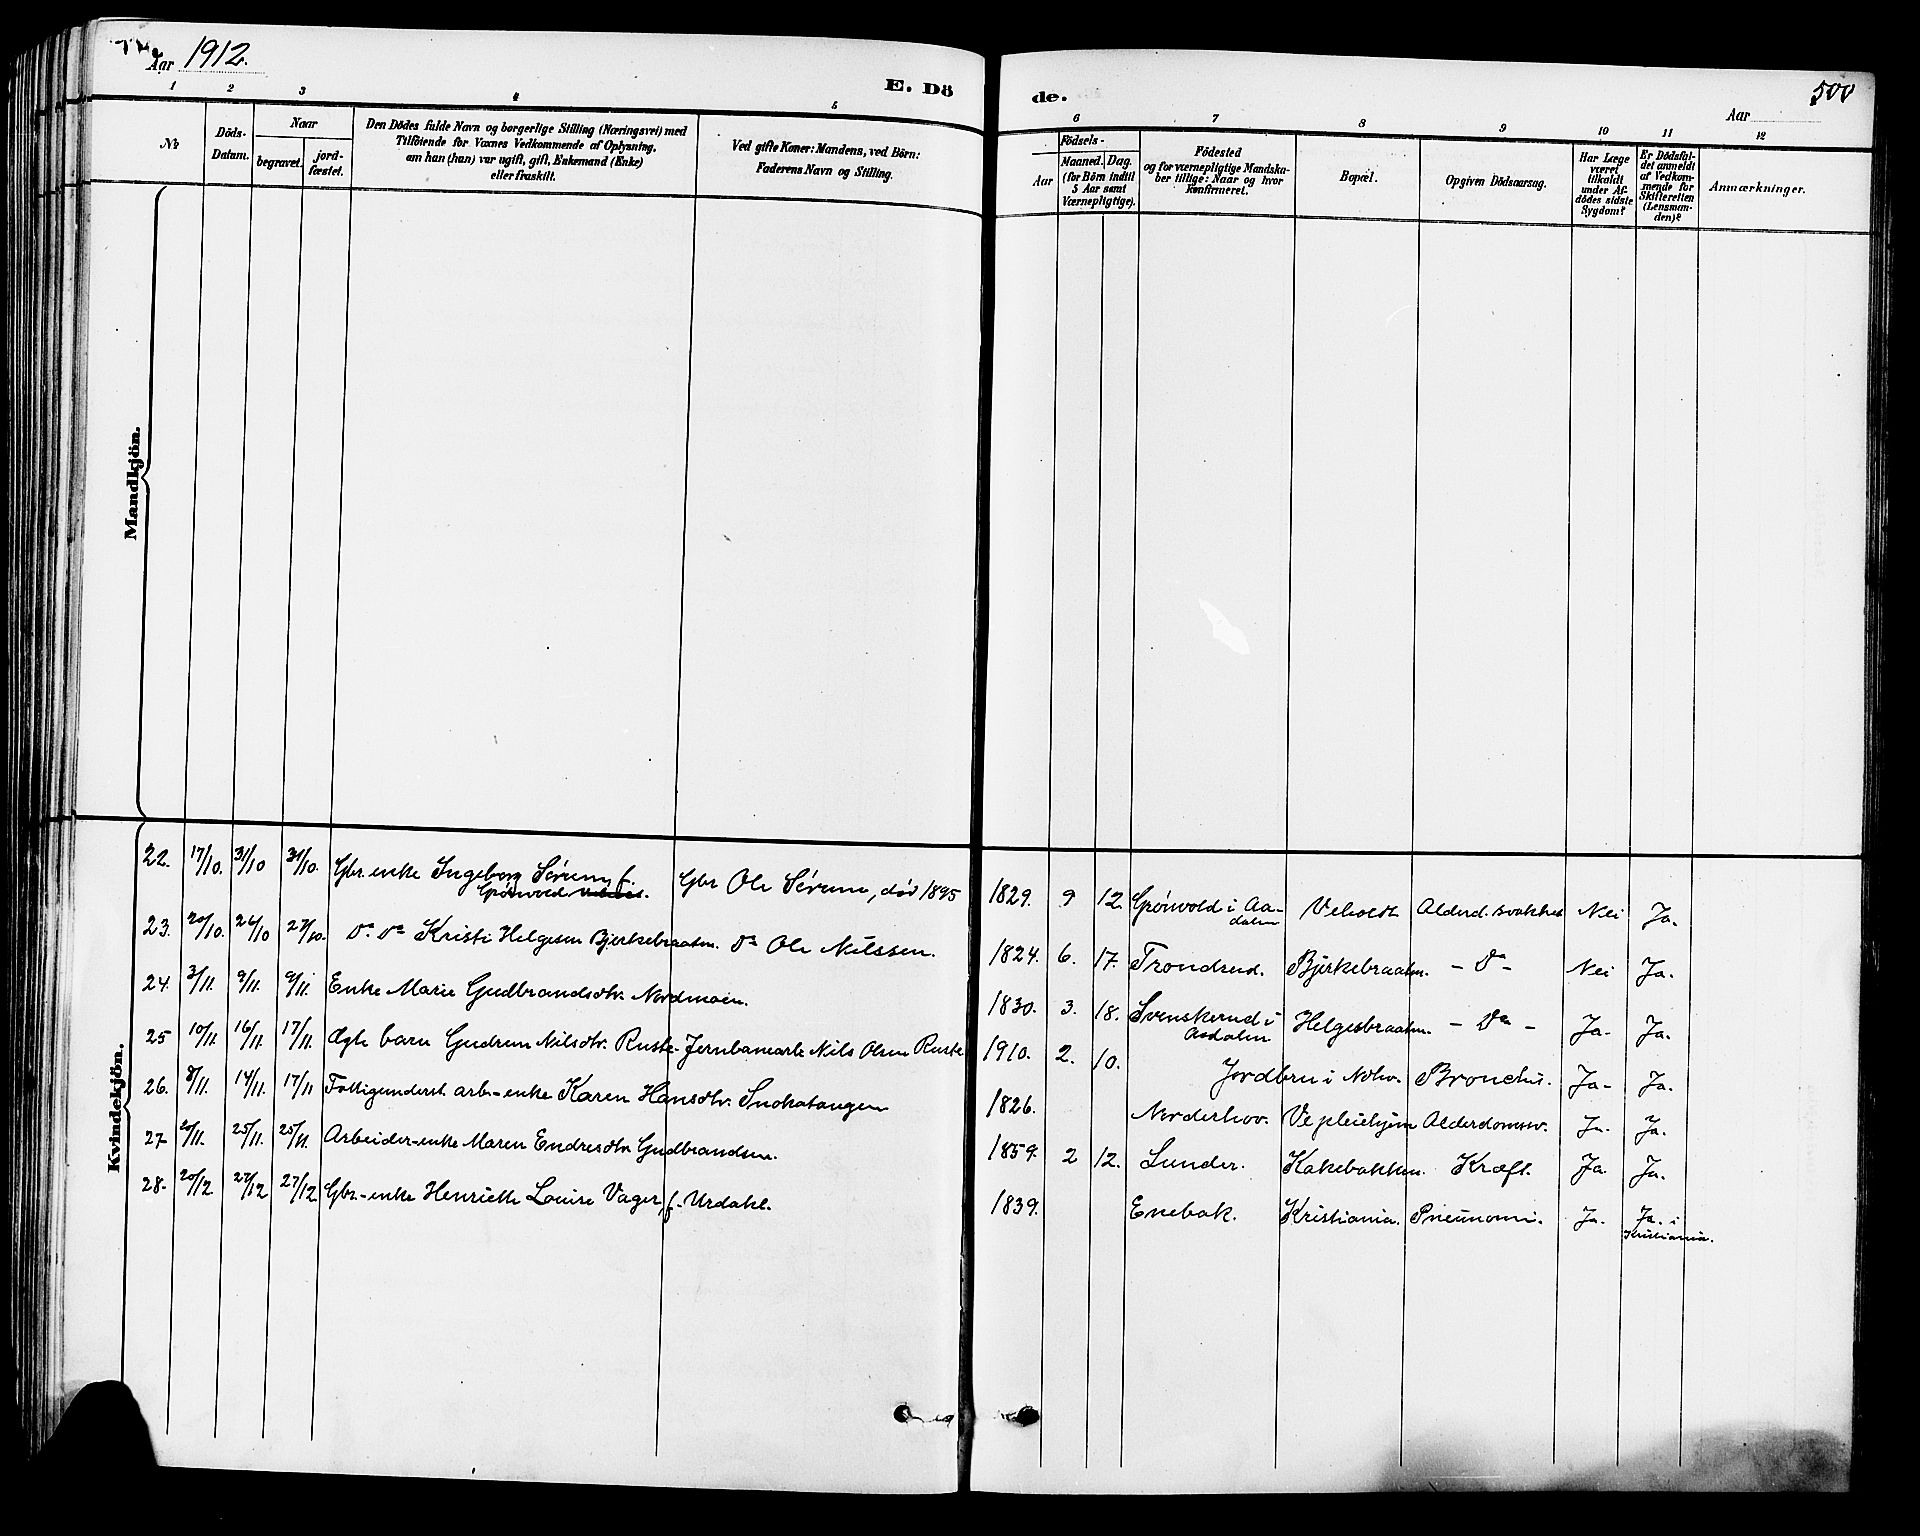 Aar 1912.
E. Dö
de.
500
Aar
1 2 3 4 5 6 7 8 9 10 11 12
No
Döds-
Datum.
Naar
begravet.
jord-
fæstet.
Den Dödes fulde Navn og borgerlige Stilling (Næringsvei) med
Tilföiende for Voxnes Vedkommende af Oplysning,
om han (hun) var ugift, gift, Enkemand (Enke)
eller fraskilt.
Ved gifte Koner: Mandens, ved Börn:
Faderens Navn og Stilling.
Födsels-
Aar
Maaned. Dag.
(for Börn indtil
5 Aar samt
Værnepligtige).
Födested
og for værnepligtige Mandska-
ber tillige: Naar og hvor
Konfirmeret.
Bopæl.
Opgiven Dödsaarsag.
Har Læge
været
tilkaldt
under Af-
dödes sidste
Sygdom?
Er Dödsfal-
det anmeldt
af Vedkom-
mende for
Skifteretten
(Lensman-
den)?
Anmærkninger.
Mandkjön.
Kvindekjön.
22. 17/10. 31/10 31/10. Gbr. enke Ingeborg Sørum, f. Grønvold Gbr Ole Sørum, død 1895 1829. 9 12. Grønvold i Aa-dalen Veholdt Alderd. svakhet Nei Ja.
23. 20/10. 26/10 27/10. Do. Do Kristi Helgesen Bjerkebraaten. Do Ole Nilssen. 1824. 6. 17. Trondrud. Bjerkebraaten. - Do - Nei Ja.
24. 3/11. 9/11. 9/11. Enke Marie Gudbrandsdtr. Nordmoen. 1830. 3. 18. Svenskerud i Aadalen Helgesbraaten. - Do - Ja- Ja.
25 10/11. 16/11. 17/11. Ægte barn Gudrun Nilsdtr. Ruste- Jernbanearb. Nils Olsen Ruste 1910. 2. 10. Jordbru i Nohv. Bronchit. Ja- Ja.
26. 8/11. 14/11. 17/11 Fattigunderst. arb.-enke Karen Hansdtr. Snokatangen 1826. Norderhov. Ve pleiehjem Alderdomssv. Ja- Ja.
27- 25/11. 25/11. Arbeider-enke Maren Endresdtr. Gudbrandsen. 1859. 2 12. Lunder. Kakebakken. Kræft. Ja. Ja.
28. 20/12 27/12 27/12 Gbr.-enke Henriette Louise Vager, f. Urdahl. 1839. Enebak. Kristiania. Pneumoni. Ja. Ja. i Kristiania.